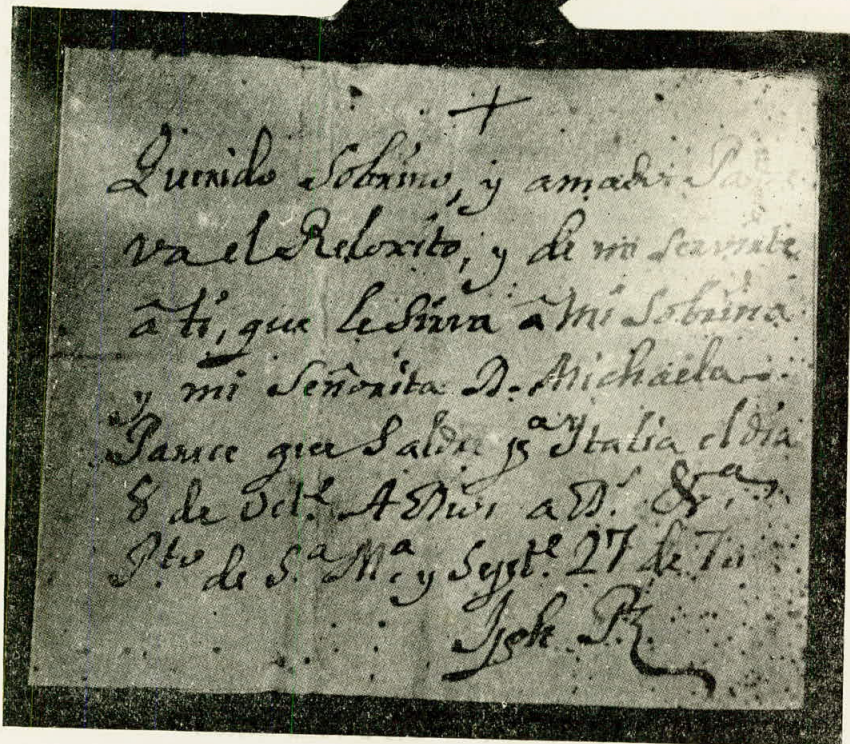 +
Querido Sobrino, y amado
va el Reloxito, y de mi
â ti, que le sirva â mi Sobrina
y mi Señorita D. Michaela.
Parece que Saldré pª Italia el día
8 de Octe. A Dios, a D.s &ª,
Pto de Sª Mª y Septe. 27 de
Jph Pz.